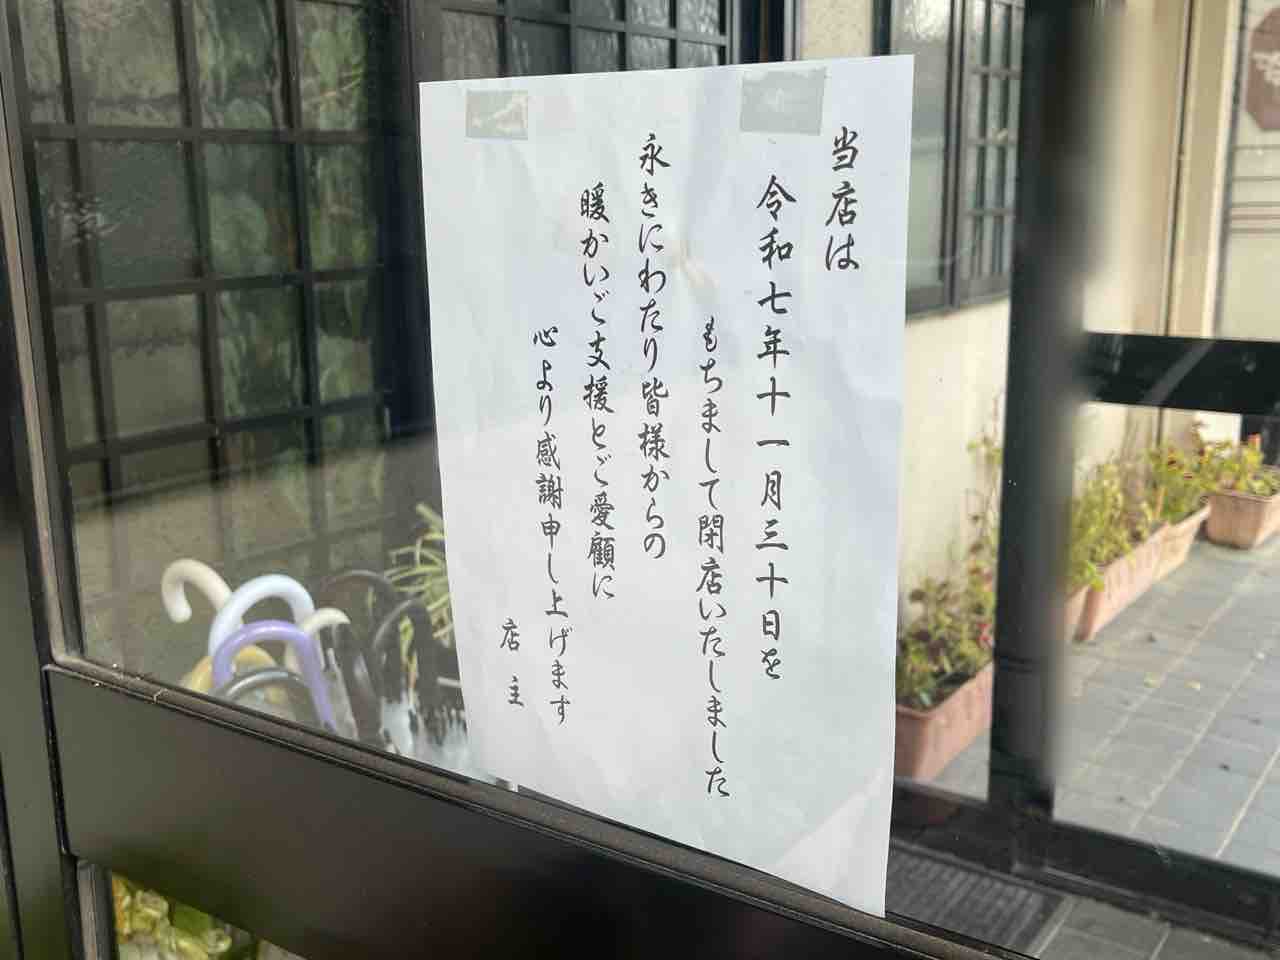 当店は
令和七年十一月三十日を
もちまして閉店いたしました
永きにわたり皆様からの
暖かいご支援とご愛顧に
心より感謝申し上げます
店主